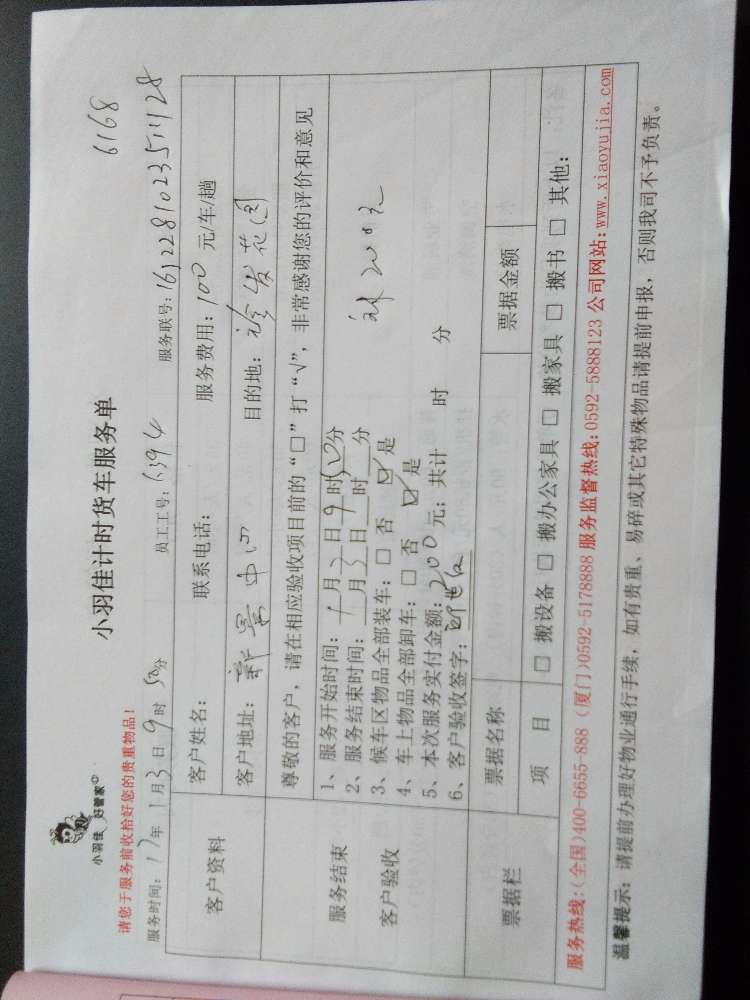 6168
小羽佳 好管家
小羽佳计时货车服务单
请您于服务前收拾好您的贵重物品！
服务时间：17年 1月3日 9时 50分 员工工号：6394 服务联号：1612281023511128
客户资料
客户姓名： 联系电话： 服务费用：100 元/车/趟
客户地址：新景中心 目的地：发花园
服务结束
客户验收
尊敬的客户，请在相应验收项目前的“□”打“√”，非常感谢您的评价和意见
1、服务开始时间：1月3日9时50分
2、服务结束时间： 月3日9时 分
3、候车区物品全部装车：□ 否 ☑ 是
4、车上物品全部卸车：□ 否 ☑ 是
5、本次服务实付金额：200 元；共计 时 分
200元
6、客户验收签字：
票据栏
票据名称 票据金额
项 目 □ 搬设备 □ 搬办公家具 □ 搬家具 □ 搬书 □ 其他：
服务热线：(全国)400-6655-888 (厦门)0592-5178888 服务监督热线：0592-5888123 公司网站：www.xiaoyujia.com
温馨提示：请提前办理好物业通行手续，如有贵重、易碎或其它特殊物品请提前申报，否则我司不予负责。